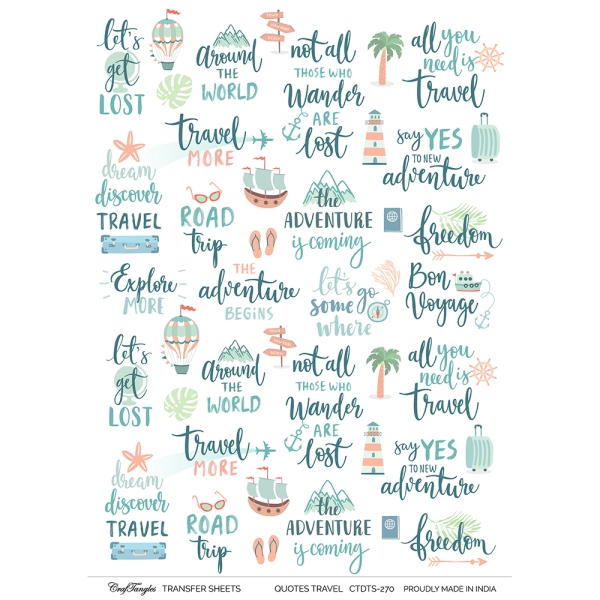 let's
get
LOST
around
THE
WORLD
not all
THOSE WHO
Wander
ARE
lost
all you
need is
travel
travel
MORE
say YES
TO NEW
adventure
dream
discover
TRAVEL
ROAD
trip
the
ADVENTURE
is coming
freedom
Explore
MORE
THE
adventure
BEGINS
let's
some go
where
Bon
Voyage
let's
get
LOST
around
THE
WORLD
not all
THOSE WHO
Wander
ARE
lost
all you
need is
travel
travel
MORE
say YES
TO NEW
adventure
dream
discover
TRAVEL
ROAD
trip
the
ADVENTURE
is coming
freedom
CrafTangles TRANSFER SHEETS QUOTES TRAVEL CTDTS-270 PROUDLY MADE IN INDIA